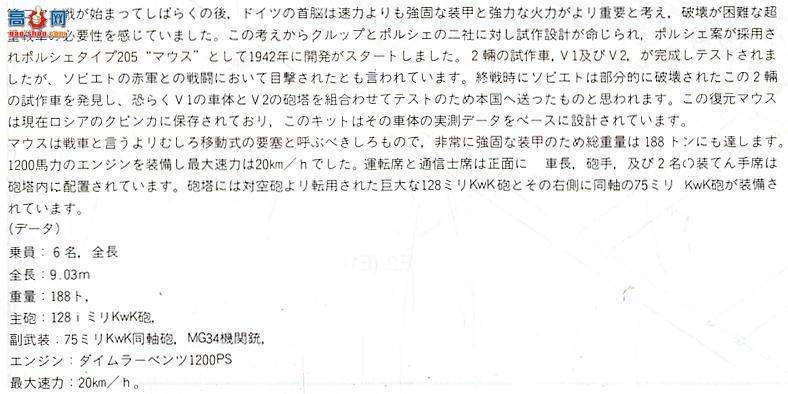 戦が始まってしばらくの後，ドイツの首脳は速力よりも強固な装甲と強力な火力がより重要と考え，破壊が困難な超
重戦車の必要性を感じていました。この考えからクルップとポルシェの二社に対し試作設計が命じられ，ポルシェ案が採用さ
れポルシェタイプ205“マウス”として1942年に開発がスタートしました。２輛の試作車，V1及びV2，が完成しテストされま
したが、ソビエトの赤軍との戦闘において目撃されたとも言われています。終戦時にソビエトは部分的に破壊されたこの２輛
の試作車を発見し、恐らくV1の車体とV2の砲塔を組合わせてテストのため本国へ送ったものと思われます。この復元マウス
は現在ロシアのクビンカに保存されており，このキットはその車体の実測データをベースに設計されています。
マウスは戦車と言うよりむしろ移動式の要塞と呼ぶべきしろもので，非常に強固な装甲のため総重量は188トンにも達します。
1200馬力のエンジンを装備し最大速力は20km／hでした。運転席と通信士席は正面に　車長，砲手，及び２名の装てん手席は
砲塔内に配置されています。砲塔には対空砲より転用された巨大な128ミリKwK砲とその右側に同軸の75ミリ KwK砲が装備さ
れています。
(データ)
乗員：６名，全長
全長：9.03m
重量：188ト，
主砲：128ｉミリKwK砲，
副武装：75ミリKwK同軸砲，MG34機関銃，
エンジン：ダイムラーベンツ1200PS
最大速力：20km／h。